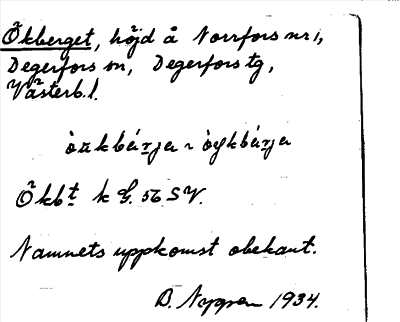 Ökberget, höjd å Norrfors nr 1,
Degerfors sn, Degerfors tg,
Västerb. l.
òu̯kbárja ~ òykbárja
Ökbt k G. 56 SV.
Namnets uppkomst obekant.
B. Nygren 1934.